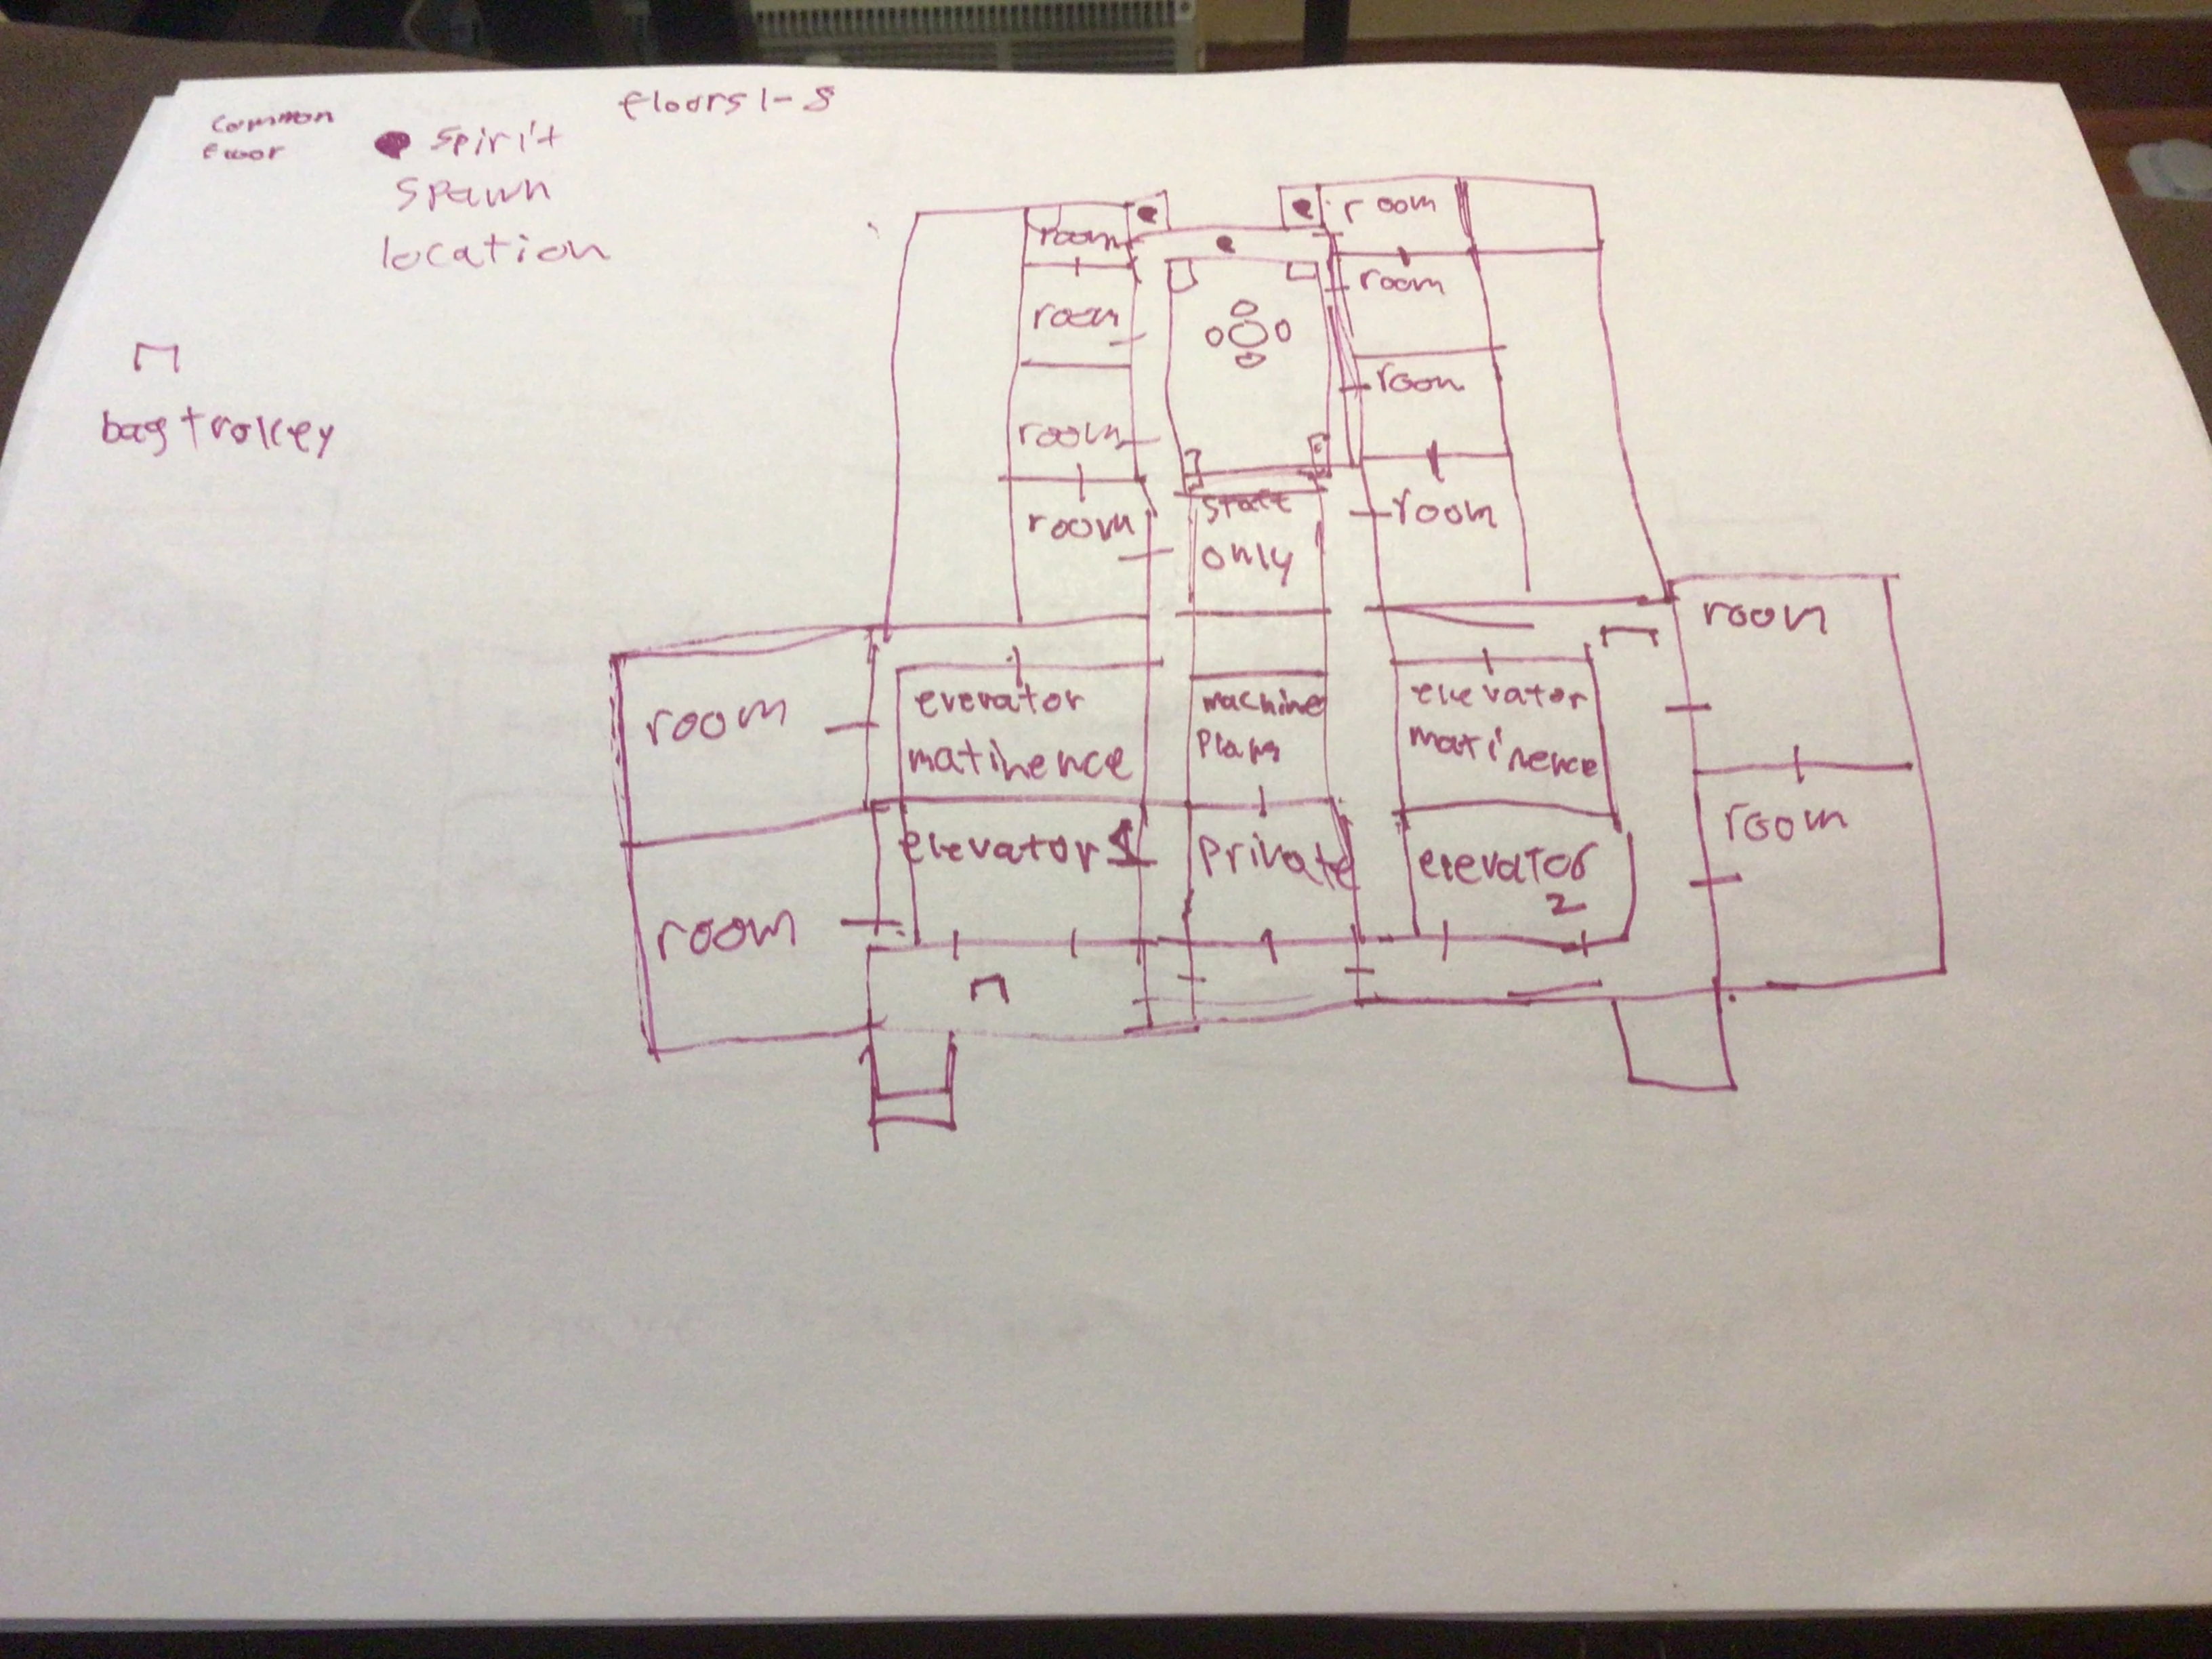 common
floor
spirit
spawn
location
floors 1-8
bag trolley
room
room
room
room
room
room
room
room
staff
only
room
room
room
room
elevator
matinence
machine
elevator
matinence
elevator 1
private
elevator
2